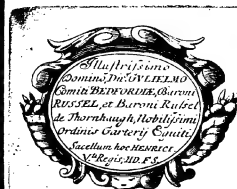 Illustrissimo
Domino, Dno GVLIELMO
Comiti BEDFORDIÆ, Baroni
RUSSEL, et Baroni Russel
de Thornhaugh, Nobilissimi
Ordinis Garterij Equiti,
Sacellum hoc HENRICI
VII Regis, HD. F.S.